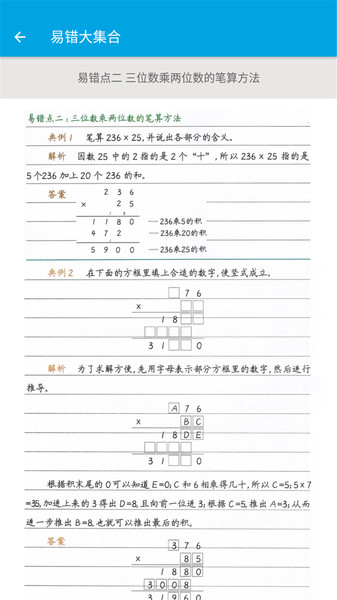 易错大集合
易错点二 三位数乘两位数的笔算方法
易错点二:三位数乘两位数的笔算方法
典例1 笔算 236 × 25,并说出各部分的含义。
解析 因数 25 中的 2 指的是 2 个“十”,所以 236 × 25 指的是
5 个236 加上 20 个 236 的和。
答案 2 3 6
× 2 5
1 1 8 0 —236乘5的积
4 7 2 —236乘20的积
5 9 0 0 —236乘25的积
典例2 在下面的方框里填上合适的数字,使竖式成立。
□ 7 6
× □ □
1 8 □ □
□ □ □ □
3 1 □ □ 0
解析 为了求解方便,先用字母表示部分方框里的数字,然后进行
推导。
A 7 6
× B C
1 8 D E
□ □ □ □
3 1 □ □ 0
根据积末尾的 0 可以知道 E=0;C 和 6 相乘得几十,所以 C=5;5 × 7
=35,加进上来的 3 得出 D=8,且向前一位进 3;根据 C=5,推出 A=3;从而
进一步推出 B=8,也就可以推出最后的积。
答案 3 7 6
× 8 5
1 8 8 0
3 0 0 8
3 1 9 6 0